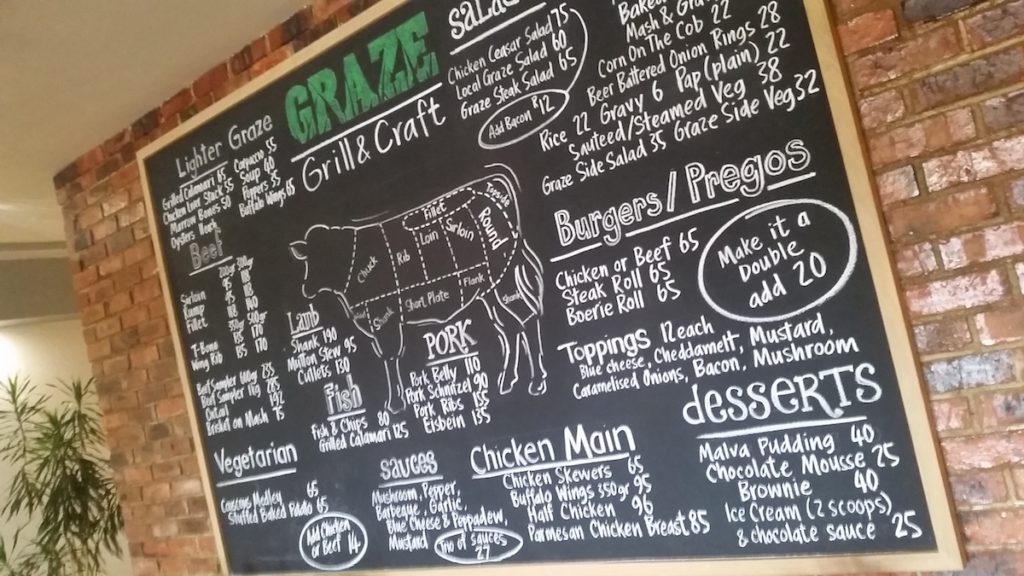 GRAZE
Grill & Craft
Lighter Graze
Grilled Calamari 65
Chicken Liver Stack 55
Marrow Bones 50
Carpaccio 55
Soup 60
Buffalo Wings 65
Beef
Sirloin
Fillet
T-Bone
Wing Rib
Lamb
Shank 190
Mutton Stew 95
Cutlets 130
Fish
Fish & Chips 80
Grilled Calamari 125
PORK
Pork Belly 110
Pork Schnitzel 90
Pork Ribs 155
Eisbein 155
Chuck
Rib
Loin
Fillet
Sirloin
Round
Short Plate
Flank
Shank
Shank
Vegetarian
65
Stuffed Baked Potato 55
Add Chicken
or Beef 14
sauces
Mushroom, Pepper,
Barbeque, Garlic,
Blue Cheese & Peppadew,
Mustard
Trio of sauces
27
Chicken Main
Chicken Skewers 65
Buffalo Wings 350gr 95
Half Chicken 96
Parmesan Chicken Breast 85
Chicken Caesar Salad 75
Local Graze Salad 60
Graze Steak Salad 65
Add Bacon R12
Mash & Gravy
Corn On The Cob 22
Beer Battered Onion Rings 28
Rice 22 Gravy 6 Pap (plain) 22
Sauteed/Steamed Veg 38
Graze Side Salad 35 Graze Side Veg 32
Burgers / Pregos
Chicken or Beef 65
Steak Roll 65
Boerie Roll 65
Make it a
Double
add 20
Toppings 12 each
Blue cheese, Cheddamelt, Mustard,
Caramelised Onions, Bacon, Mushroom
desserts
Malva Pudding 40
Chocolate Mousse 25
Brownie 40
Ice Cream (2 scoops)
& chocolate sauce 25